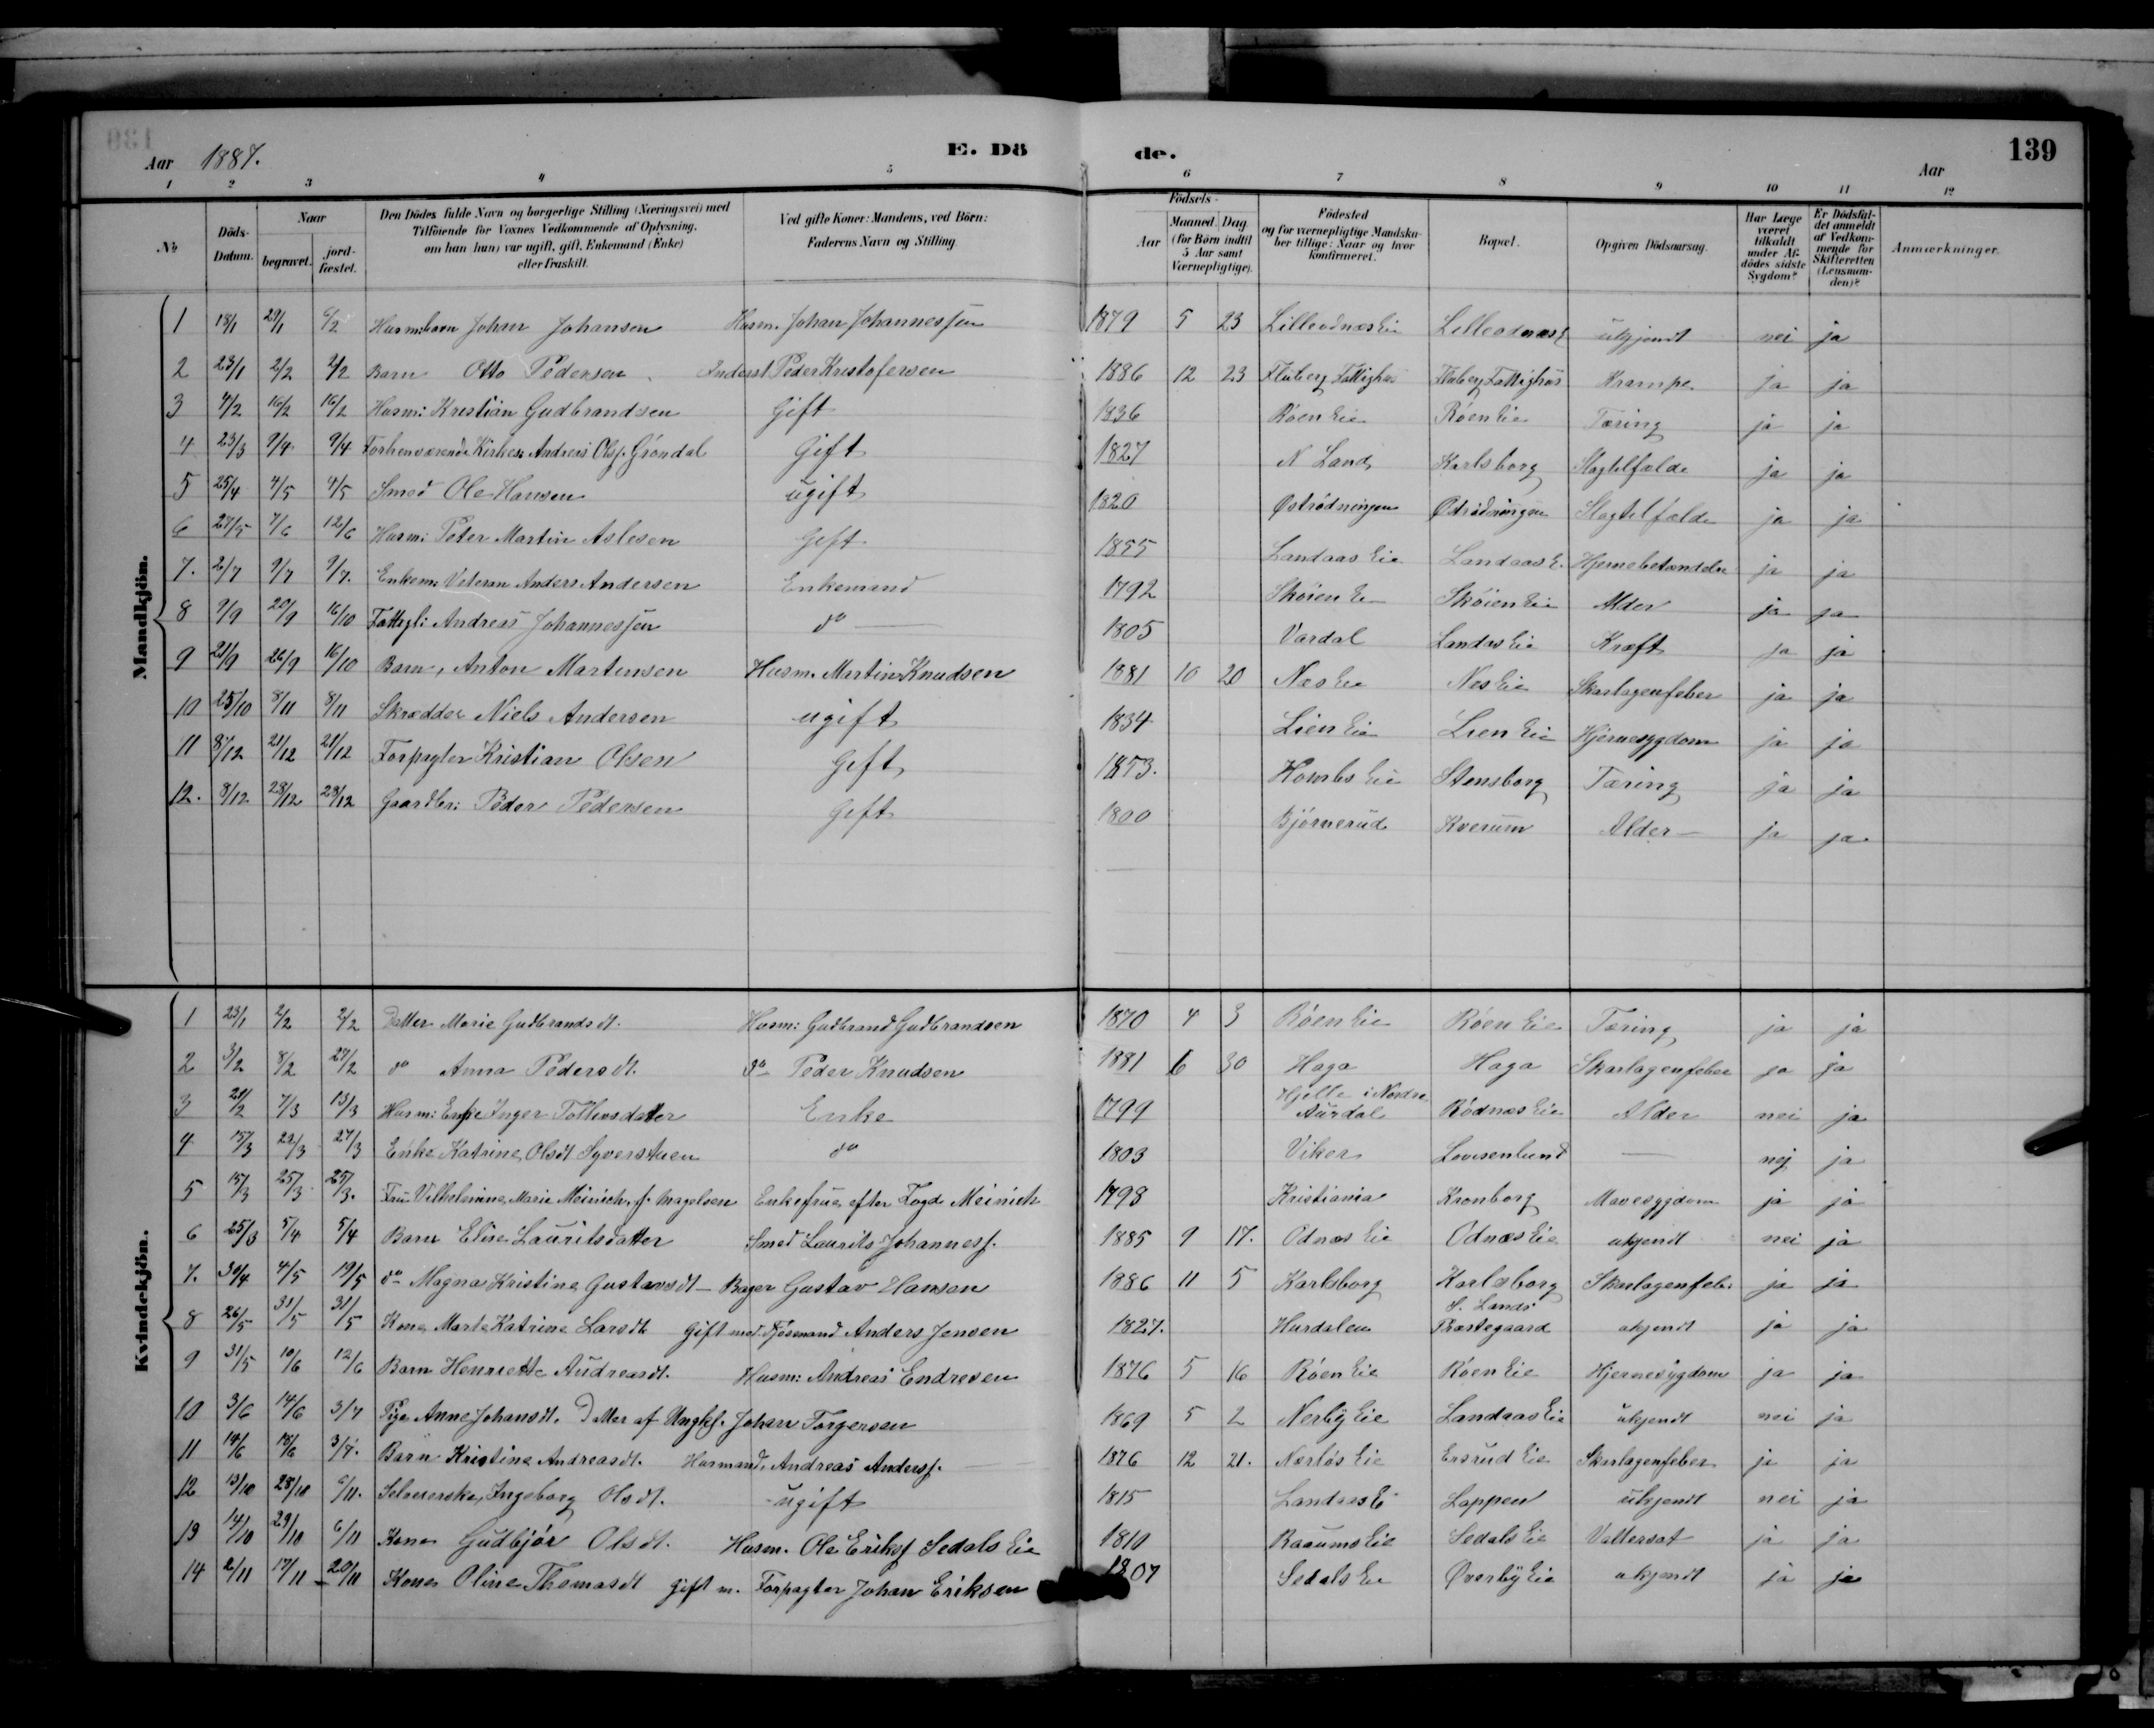 139
Aar 1887.
E. Dö de.
Aar
1 2 3 4 5 6 7 8 9 10 11 12
No
Döds-Datum.
Naar
begravet.
jord-fæstet.
Den Dödes fulde Navn og borgerlige Stilling (Næringsvei) med
Tilföiende for Voxnes Vedkommende af Oplysning,
om han (hun) var ugift, gift, Enkemand (Enke)
eller fraskilt.
Ved gifte Koner: Mandens, ved Börn:
Faderens Navn og Stilling.
Födsels-
Aar
Maaned. Dag
(for Börn indtil
5 Aar samt
Værnepligtige).
Födested
og for værnepligtige Mandska-
ber tillige: Naar og hvor
konfirmeret.
Bopæl.
Opgiven Dödsaarsag.
Har Læge
været
tilkaldt
under Af-
dödes sidste
Sygdom?
Er Dödsfal-
det anmeldt
af Vedkom-
mende for
Skifteretten
(Lensman-
den)?
Anmærkninger.
Mandkjön.
1 18/1 29/1 6/2 Husm:barn Johan Johansen Husm. Johan Johannessen 1879 5 23 Lilleodnæs Eie Lilleodnæs E ukjendt nei ja
2 23/1 2/2 2/2 Barn Otto Pedersen Inderst Peder Kristofersen 1886 12 23 Fluberg Fattighus Fluberg Fattighus Krampe ja ja
3 4/2 16/2 16/2 Husm: Kristian Gudbrandsen Gift 1836 Röen Eie Röen Eie Tæring ja ja
4 23/3 9/4 9/4 Forhenværende Kirkes: Andreas Olss. Gröndal Gift 1827 N Land Karlsborg Slagtilfælde ja ja
5 25/4 4/5 4/5 Smed Ole Hansen ugift 1820 Öströdningen Öströdningen Slagtilfælde ja ja
6 27/5 7/6 12/6 Husm: Peter Martin Aslesen Gift 1855 Landaas Eie Landaas E. Hjernebetændelse ja ja
7. 2/7 9/7 9/7. Enkem: Veteran Anders Andersen Enkemand 1792 Sköien E Sköien Eie Alder ja ja
8 9/9 20/9 16/10 Fattigl: Andreas Johannessen do 1805 Vardal Landas Eie Kræft ja ja
9 21/9 26/9 16/10 Barn, Anton Martinsen Husm. Martin Knudsen 1881 10 20 Næs Eie Nes Eie Skarlagenfeber ja ja
10 25/10 8/11 8/11 Skrædder Niels Andersen ugift 1834 Lien Eie Lien Eie Hjernesygdom ja ja
11 8/12 21/12 21/12 Forpagter Kristian Olsen Gift 1853. Homls Eie Stensborg Tæring ja ja
12. 8/12 28/12 28/12 Gaardbr: Peder Pedersen Gift 1800 Björnerud Kverum Alder ja ja
Kvindekjön.
1 23/1 2/2 2/2 Datter Marie Gudbrandsdt. Husm: Gudbrand Gudbrandsen 1870 4 3 Röen Eie Röen Eie Tæring ja ja
2 3/2 8/2 27/2 do Anna Pedersdt. do Peder Knudsen 1881 6 30 Haga Haga Skarlagenfeber ja ja
3 21/2 7/3 13/3 Husm: Enke Inger Tollevsdatter Enke 1799 Hjelle i Nordre Aurdal Rödnæs Eie Alder nei ja
4 15/3 22/3 27/3 Enke Katrine Olsdt Syverstuen do 1803 Viker Lovisenlund — nej ja
5 15/3 25/3 25/3. Fru Vilhelmine Marie Meinich, f. Magelsen Enkefrue efter Fogd Meinich 1798 Kristiania Kronborg Mavesygdom ja ja
6 25/3 5/4 5/4 Barn Elise Lauritsdatter Smed Laurits Johanness. 1885 9 17. Odnæs Eie Odnæs Eie ukjendt nei ja
7. 30/4 4/5 19/5 do Magna Kristine Gustavsdt — Bager Gustav Hansen 1886 11 5 Karlsborg Karlsborg Skarlagenfeb. ja ja
8 26/5 31/5 31/5 Kone Marte Katrine Larsdt. Gift med Fjösmand Anders Jensen 1827. Hurdalen S. Lands Præstegaard ukjendt ja ja
9 31/5 10/6 12/6 Barn Henriette Andreasdt. Husm: Andreas Endresen 1876 5 16 Röen Eie Röen Eie Hjernesygdom ja ja
10 3/6 14/6 3/7 Pige Anne Johansdt. Datter af Ungkf. Johan Torgersen 1869 5 2 Nerby Eie Landaas Eie ukjendt nei ja
11 14/6 18/6 3/7. Barn Kristine Andreasdt. Husmand. Andreas Anderss. 1876 12 21. Nærlös Eie Ersrud Eie Skarlagenfeber ja ja
12 13/10 28/10 6/11. Selvererske, Ingeborg Olsdt. ugift 1815 Landaas E Lappen ukjendt nei ja
13 14/10 29/10 6/11 Kone Gudbjör Olsdt. Husm. Ole Erikss Sedals Eie 1810 Raaums Eie Sedals Eie Vattersot ja ja
14 2/11 17/11 20/11 Kone Oline Thomasdt Gift m. Forpagter Johan Eriksen 1807 Sedals Eie Överby Eie ukjendt ja ja